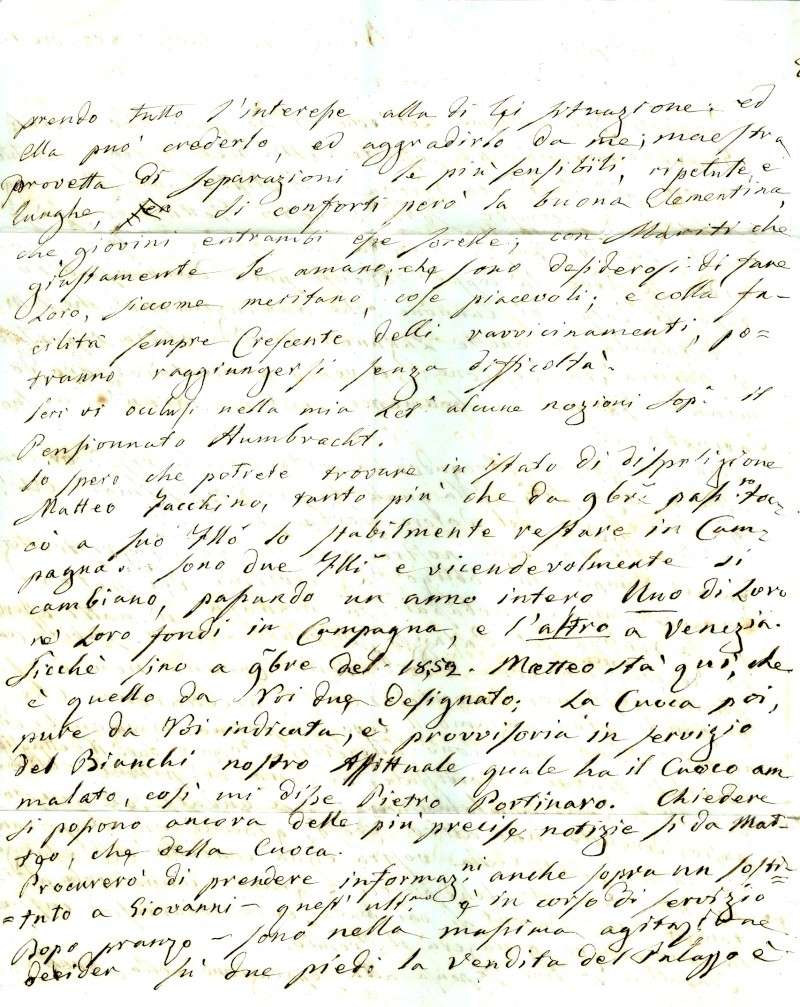 prendo tutto l'interesse alla di lei situazione; ed
ella può crederlo, ed aggradirlo da me; maestra
provetta di separazioni le più sensibili, ripetute, e
lunghe, si conforti però la buona Clementina,
che giovini entrambi esse sorelle; con Mariti che
giustamente le amano; che sono desiderosi di fare
Loro, siccome meritano, cose piacevoli; e colla fa-
cilità sempre Crescente delli ravvicinamenti, po=
tranno raggiungersi senza difficoltà.
Ieri vi occlusi nella mia Letª alcune nozioni sopª il
Pensionnato Humbracht.
Io spero che potrete trovare in istato di disposizione
Matteo Facchino, tanto più che da 9bre pass.to toc=
cò a suo Fllo lo stabilmente restare in Cam=
pagna. sono due Flli e vicendevolmente si
cambiano, passando un anno intero Uno di Loro
ne' Loro fondi in Campagna, e l'altro a Venezia.
Sicchè sino a 9bre del 1852. Matteo stà quì, che
è quello da Voi due designato. La Cuoca poi,
pure da Voi indicata, è provvisoria in servizio
del Bianchi nostro Affittuale, quale ha il Cuoco am
malato, così mi disse Pietro Portinaro. Chiedere
si possono ancora delle più precise notizie sì da Mat-
teo, che della Cuoca.
Procurerò di prendere informaz.ni anche sopra un sosti=
=tuto a Giovanni - quest'ult.mo è in corso di servizio
Dopo pranzo - sono nella massima agitazione
decider sù due piedi la vendita del Palazzo è